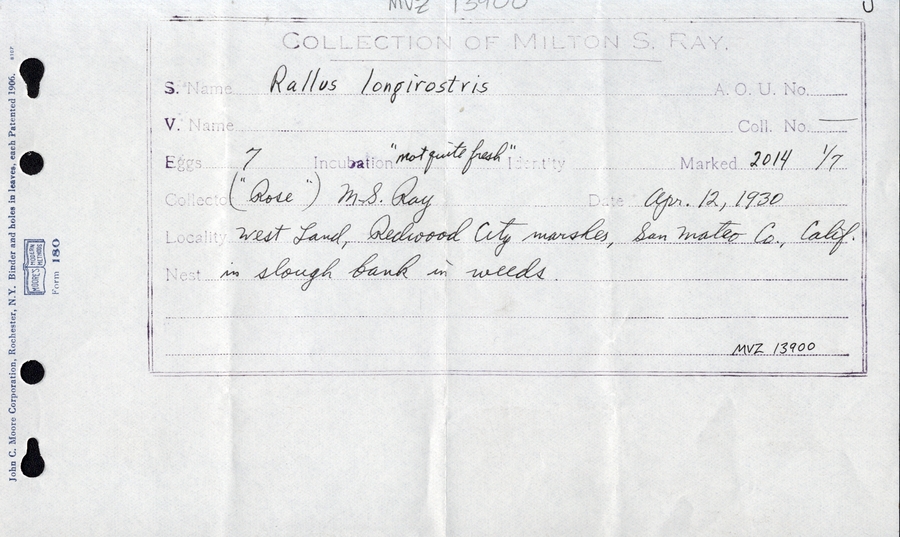 MVZ 13900
COLLECTION OF MILTON S. RAY.
S. Name Rallus longirostris A. O. U. No.
V. Name Coll. No. —
Eggs 7 Incubation "not quite fresh" Identity Marked 2014 1/7
Collector ("Rose") M.S. Ray Date Apr. 12, 1930
Locality West Land, Redwood City marshes, San Mateo Co., Calif.
Nest in slough bank in weeds.
MVZ 13900
John C. Moore Corporation, Rochester, N.Y. Binder and holes in leaves, each Patented 1906.
MOORE'S MODERN METHODS
Form 180